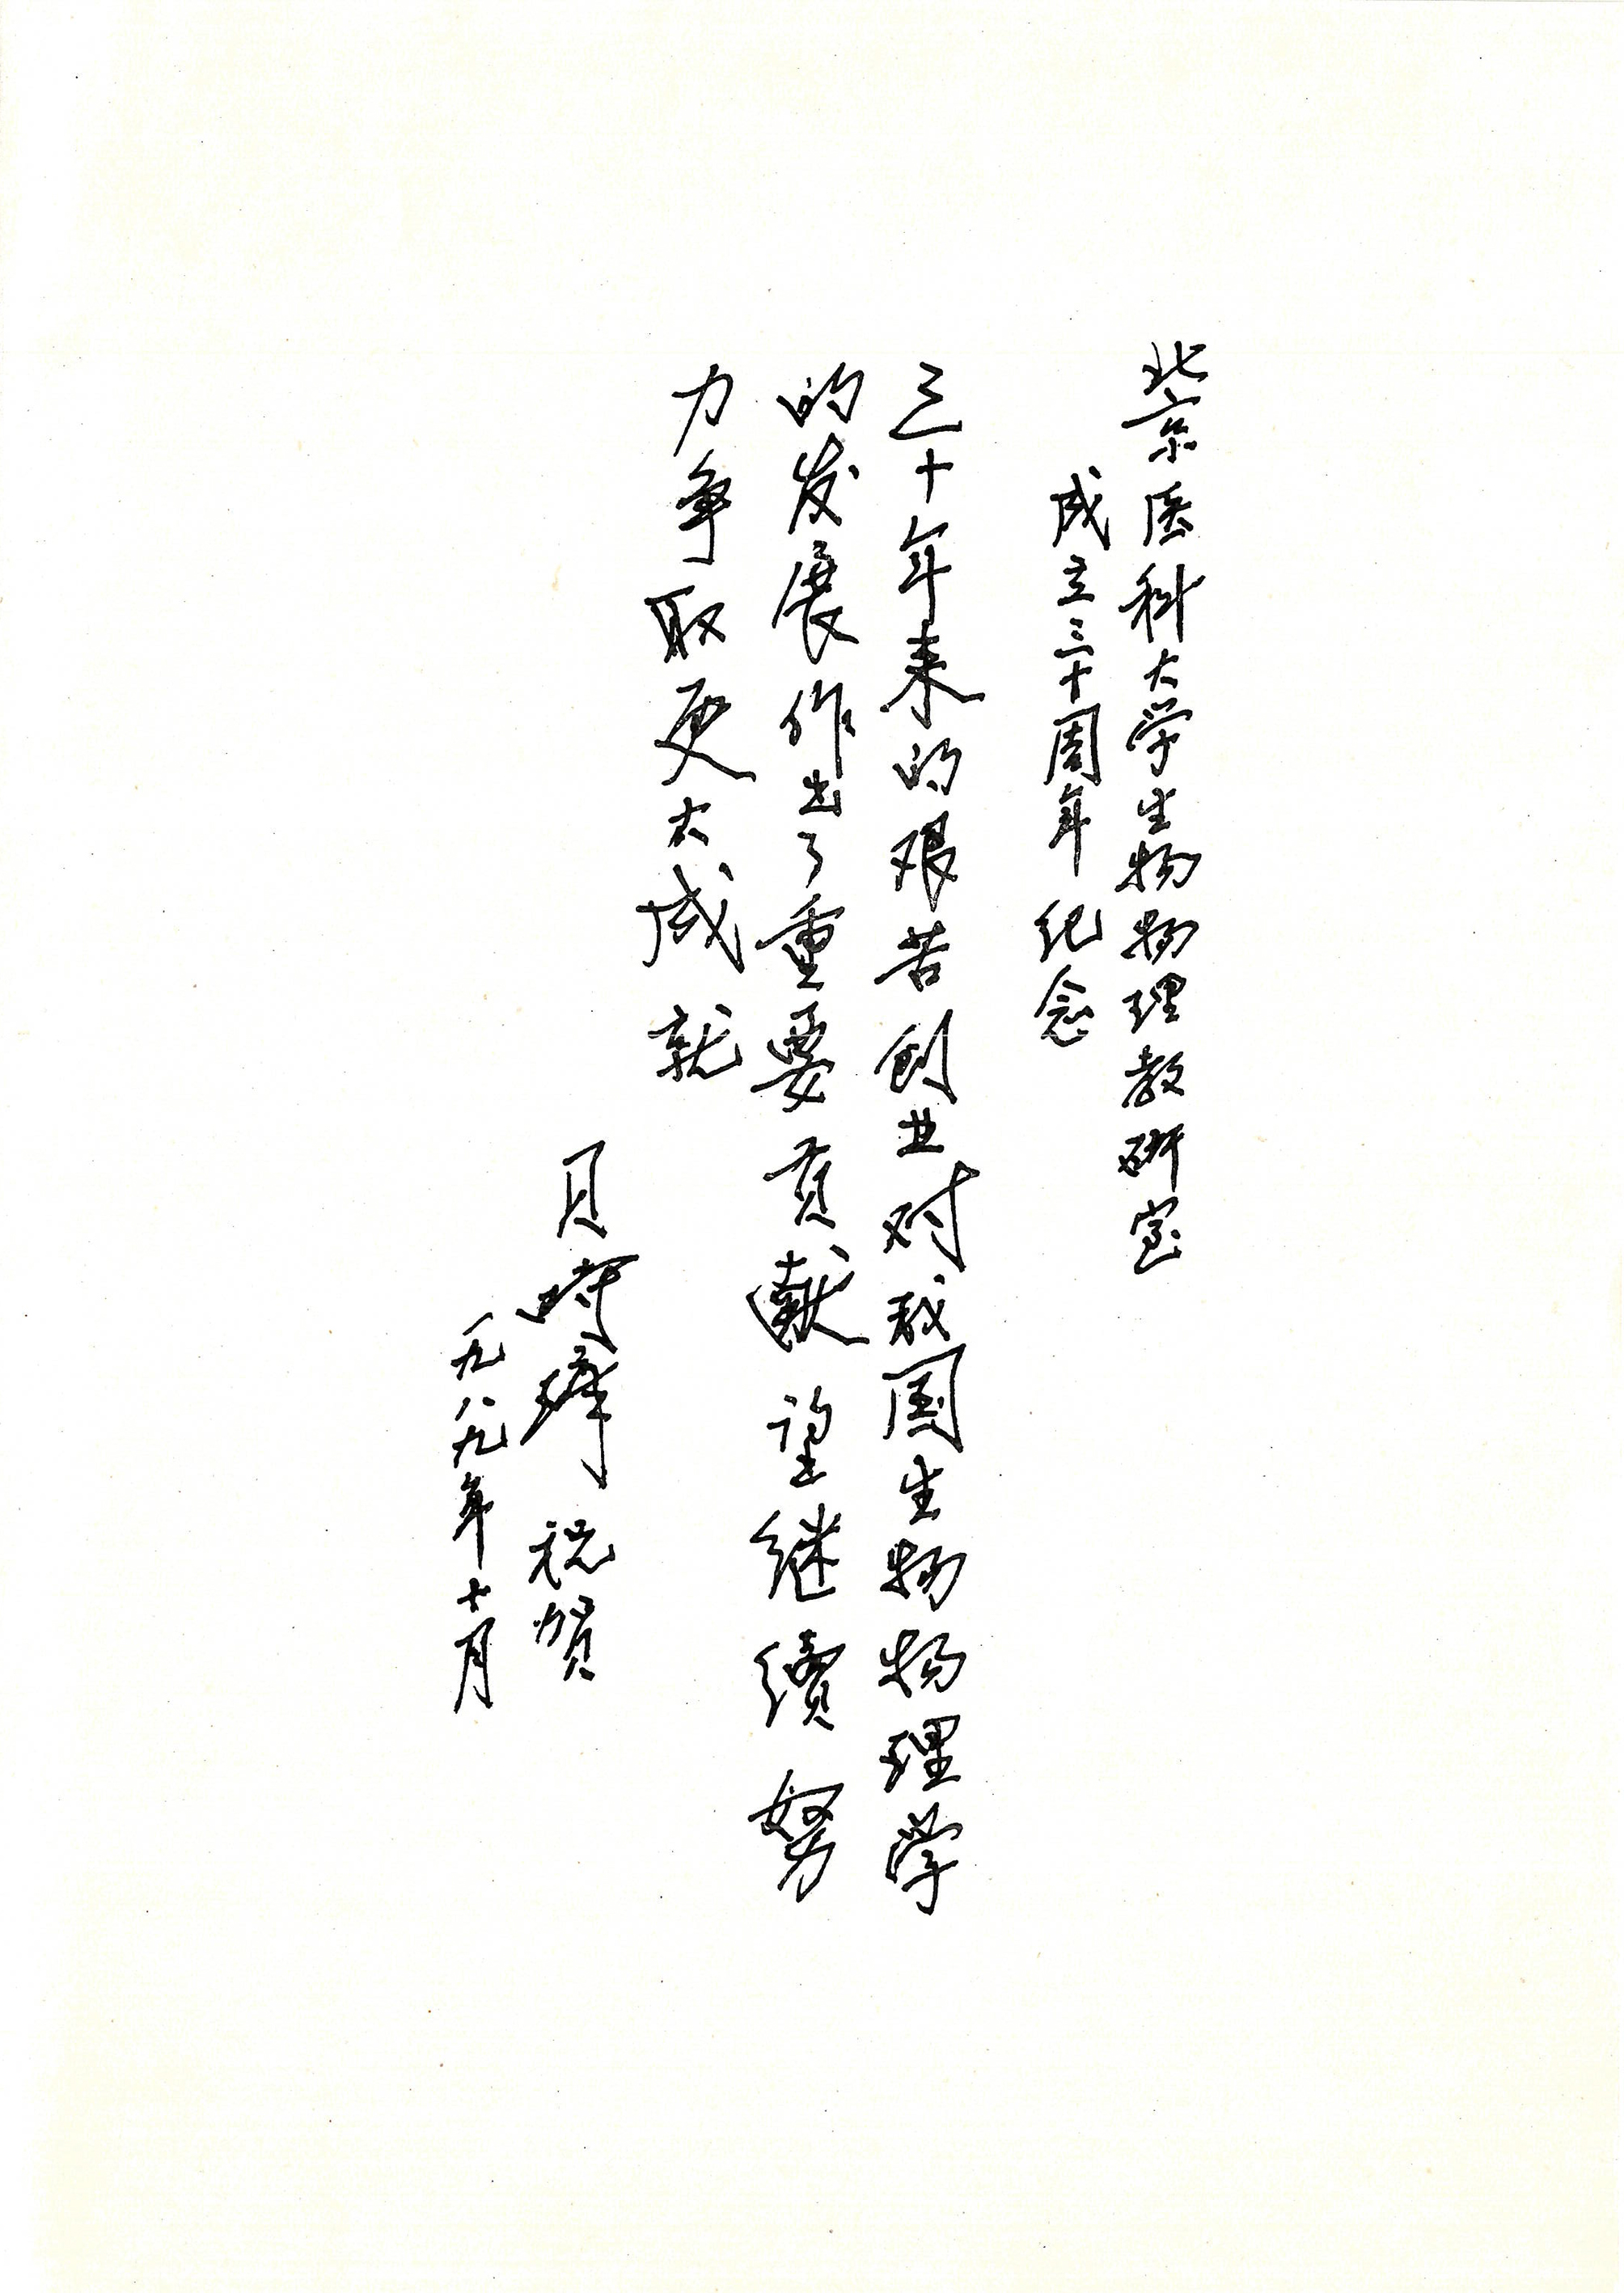 北京医科大学生物物理教研室
成立三十周年纪念
三十年来的艰苦创业对我国生物物理学
的发展作出了重要贡献望继续努
力争取更大成就
贝时璋祝贺
一九八九年十月